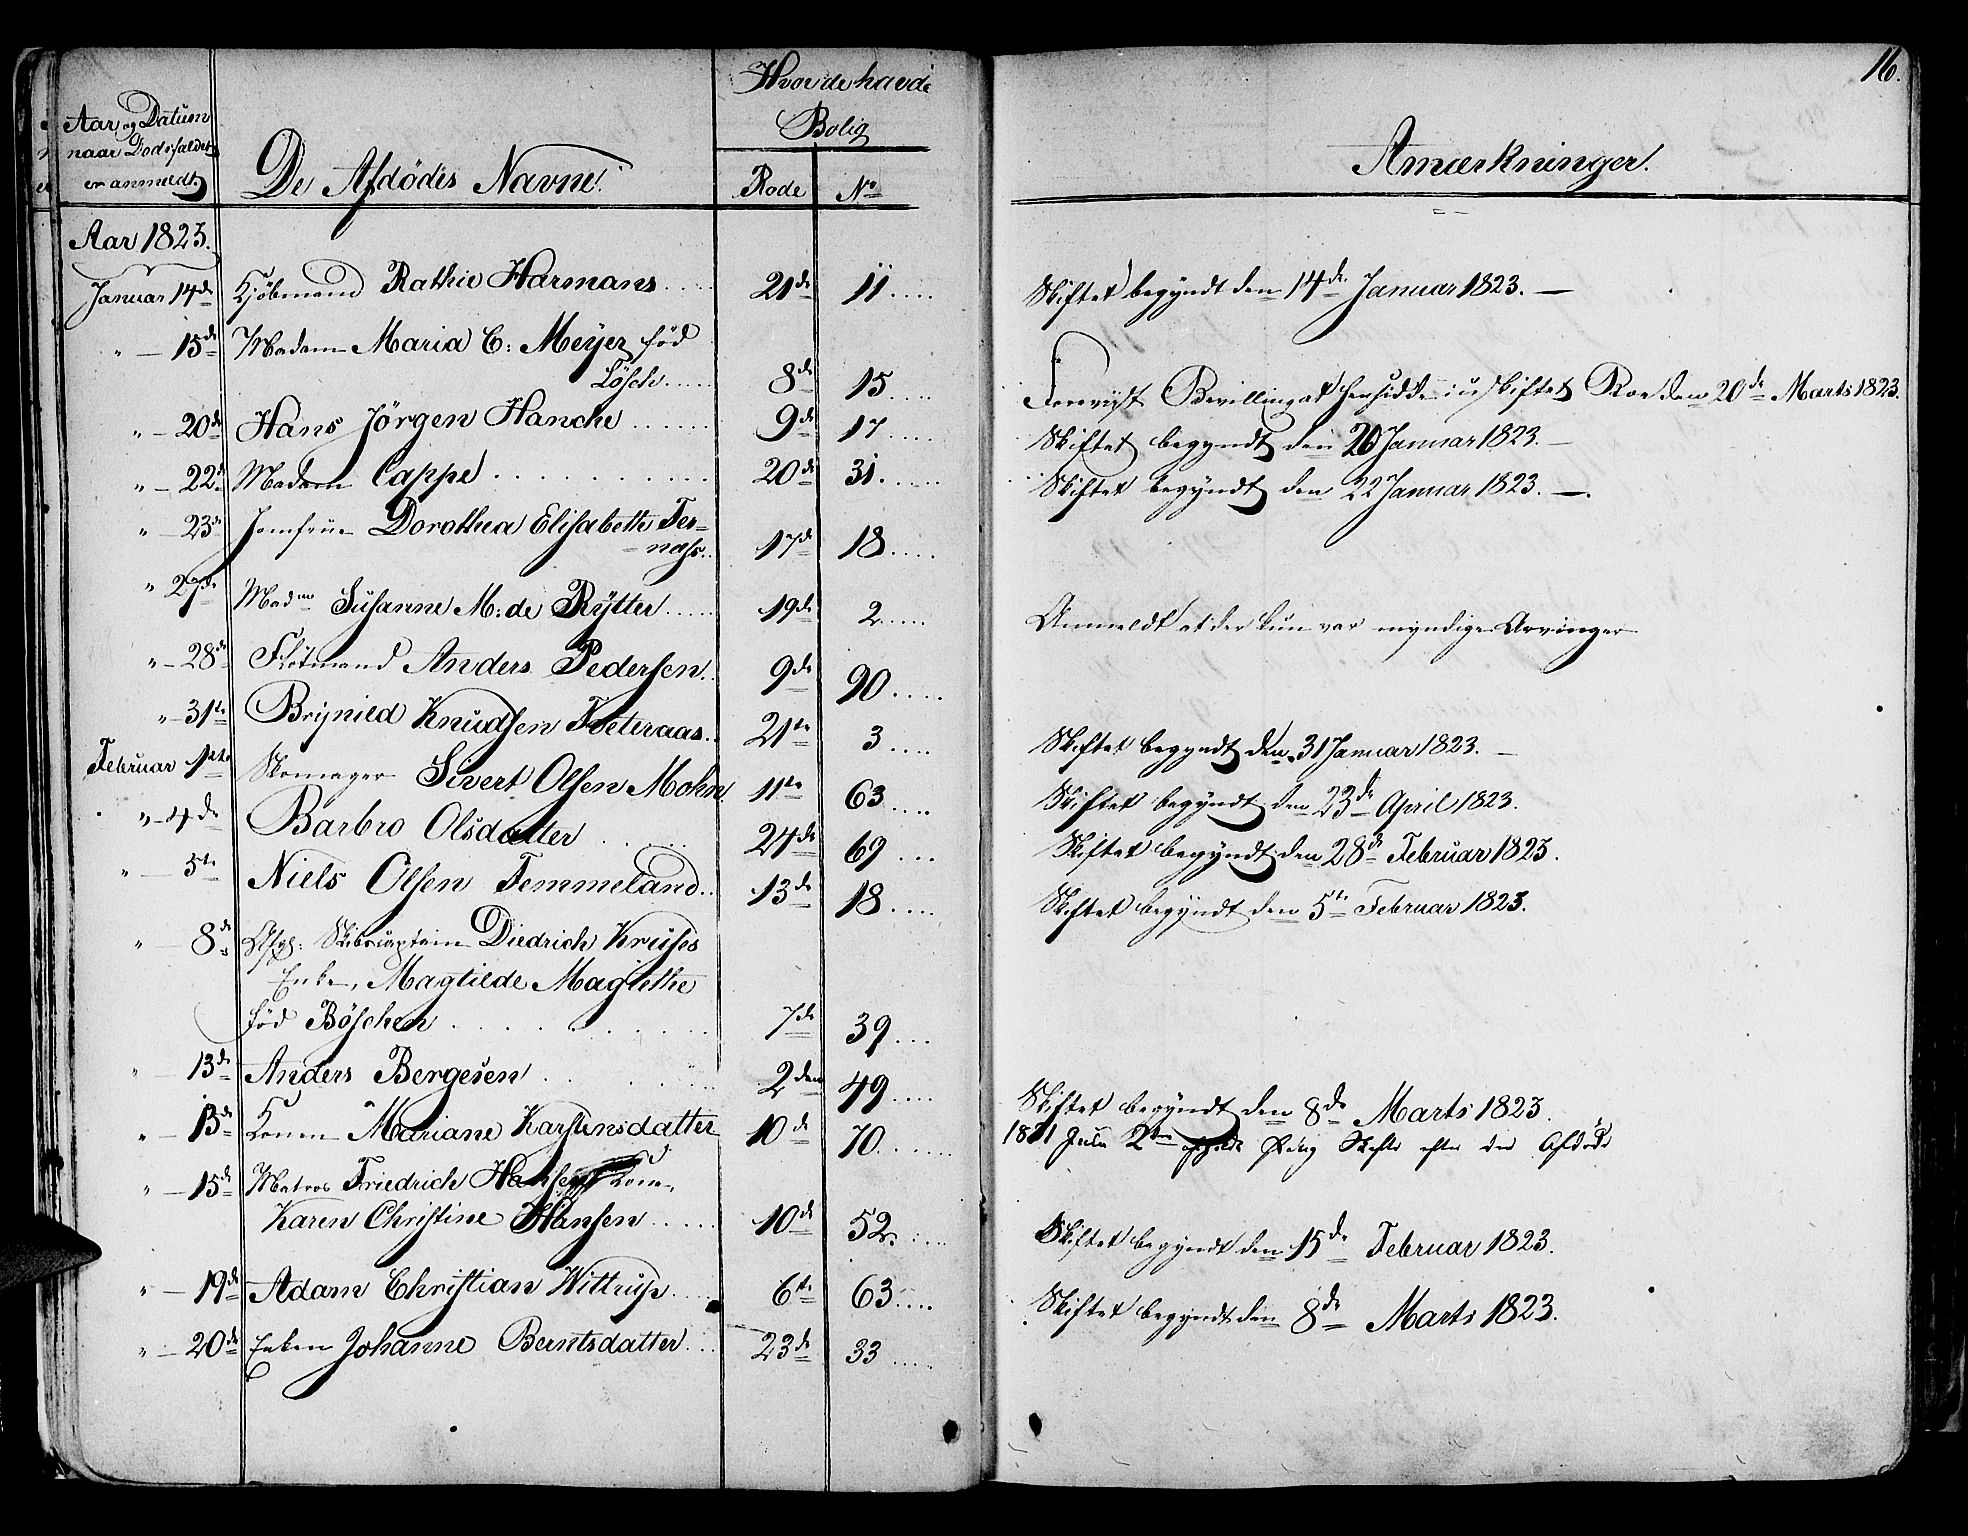 16.
Aar og Datum
naar Dødsfaldet
er anmeldt
De Afdödes Navne.
Hvor de havde
Bolig
Rode No
Anmærkninger.
Aar 1823.
Januar 14de Kjöbmand Rathie Harmans..... 21de 11.... Skiftet begyndt den 14de Januar 1823. —
" — 15de Madam Maria C: Meÿer föd
Lösch..... 8de 15.... Foreviist Bevilling at hensidde i uskiftet Boe den 20de Marts 1823.
" — 20de Hans Jörgen Hanche ...... 9de 17.... Skiftet begyndt den 20 Januar 1823. —
" — 22de Madam Cappe .......... 20de 31..... Skiftet begyndt den 22 Januar 1823. —
" — 23de Jomfrue Dorothea Elisabeth Fer=
=nass.. 17de 18....
" 27de Madme Susanne M: de Rÿtter..... 19de 2..... Anmeldt at der kun var myndige Arvinger
" — 28de Flötmand Anders Pedersen.. 9de 90.....
" — 31te Brynild Knudsen Toeteraas.. 21te 3.... Skiftet begyndt den 31 Januar 1823. —
Februar 1ste Skomager Sivert Olsen Mohn 11te 63.... Skiftet begyndt den 23de April 1823.
" — 4de Barbro Olsdatter ...... 24de 69... Skiftet begyndt den 28de Februar 1823.
" — 5te Niels Olsen Temmeland.. 13de 18.... Skiftet begyndt den 5te Februar 1823.
" — 8de Afg: Skibscaptain Diedrich Kruses
Enke, Magtilde Magrethe
föd Böschen .......... 7de 39...
" — 13de Anders Bergesen ...... 2den 49..... Skiftet begyndt den 8de Marts 1823.
" — 13de Konen Mariane Karstensdatter 10de 70....... 2den Skifte efter den Afdöde
" — 15de Matros Friedrich Hansens Kone,
Karen Christine Hansen..... 10de 52..... Skiftet begyndt den 15de Februar 1823.
" — 19de Adam Christian Wittrup..... 6te 63.... Skiftet begyndt den 8de Marts 1823.
" — 20de Enken Johanne Berntsdatter... 23de 33.....